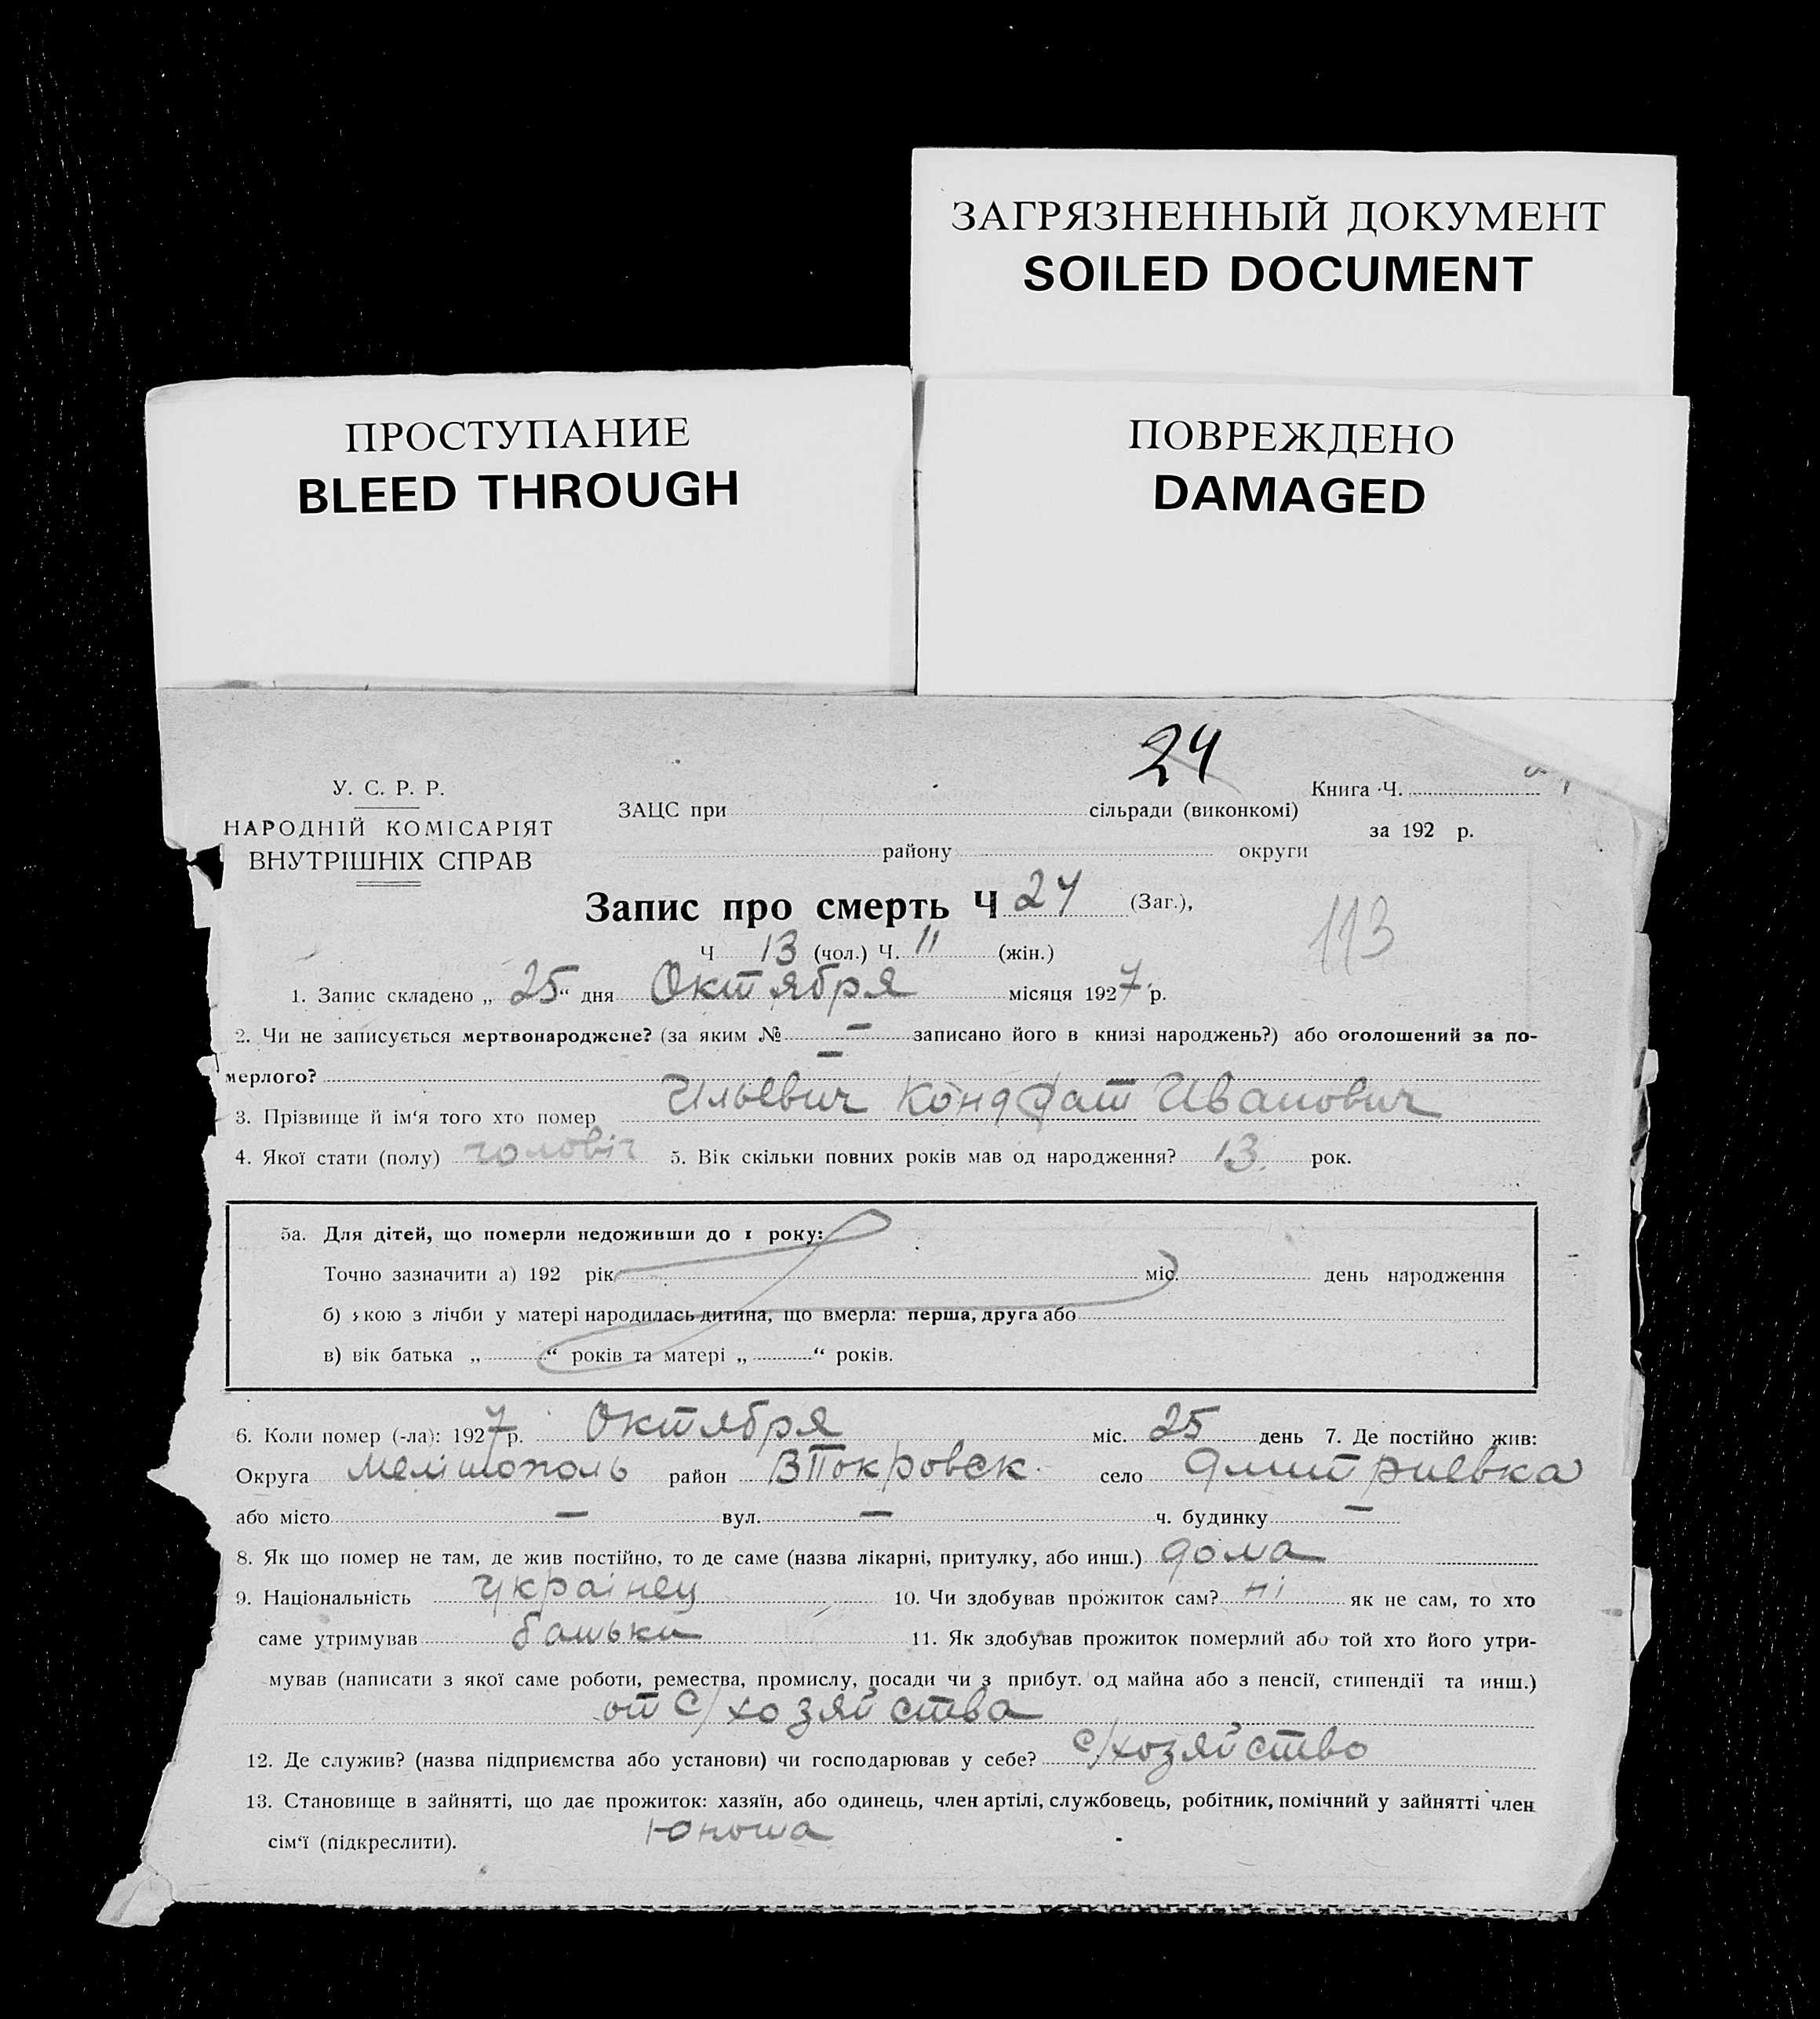 ЗАГРЯЗНЕННЫЙ ДОКУМЕНТ
SOILED DOCUMENT
ПРОСТУПАНИЕ
BLEED THROUGH
ПОВРЕЖДЕНО
DAMAGED
24
У. С. Р. Р.
НАРОДНІЙ КОМІСАРІЯТ
ВНУТРІШНІХ СПРАВ
Книга Ч.
ЗАЦС при сільради (виконкомі)
за 192 р.
району округи
Запис про смерть Ч 24 (Заг.),
113
Ч 13 (чол.) Ч. 11 (жін.)
1. Запис складено „ 25 “ дня Октября місяця 1927 р.
2. Чи не записується мертвонароджене? (за яким № — записано його в книзі народжень?) або оголошений за по-
мерлого? —
3. Прізвище й ім'я того хто помер Ильевич Кондрат Иванович
4. Якої стати (полу) чоловіч 5. Вік скільки повних років мав од народження? 13. рок.
5а. Для дітей, що померли недоживши до 1 року:
Точно зазначити а) 192 рік міс. день народження
б) якою з лічби у матері народилась дитина, що вмерла: перша, друга або
в) вік батька „ “ років та матері „ “ років.
6. Коли помер (-ла): 1927 р. Октября міс. 25 день 7. Де постійно жив:
Округа Мелітополь район ВПокровск. село Дмитриевка
або місто — вул. — ч. будинку —
8. Як що помер не там, де жив постійно, то де саме (назва лікарні, притулку, або инш.) дома
9. Національність Украінец 10. Чи здобував прожиток сам? ні як не сам, то хто
саме утримував батьки 11. Як здобував прожиток померлий або той хто його утри-
мував (написати з якої саме роботи, ремества, промислу, посади чи з прибут. од майна або з пенсії, стипендії та инш.)
от с/хозяйства
12. Де служив? (назва підприємства або установи) чи господарював у себе? с/хозяйство
13. Становище в зайнятті, що дає прожиток: хазяїн, або одинець, член артілі, службовець, робітник, помічний у зайнятті член
сім'ї (підкреслити). Юноша